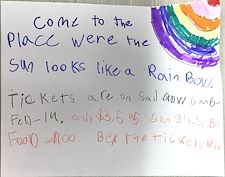 Come to the
Place were the
Sun looks like a RainBow.
Tickets are on Sail now
Feb-14. only $3,5
Food $100. Bey the tickets Now